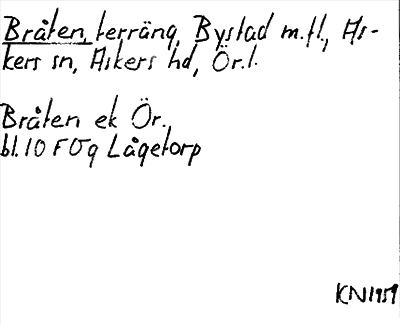 Bråten, terräng, Bystad m.fl., As-
kers sn, Askers hd, Ör.l.
Bråten ek Ör.
bl.10 F Ög Lågetorp
KN1959